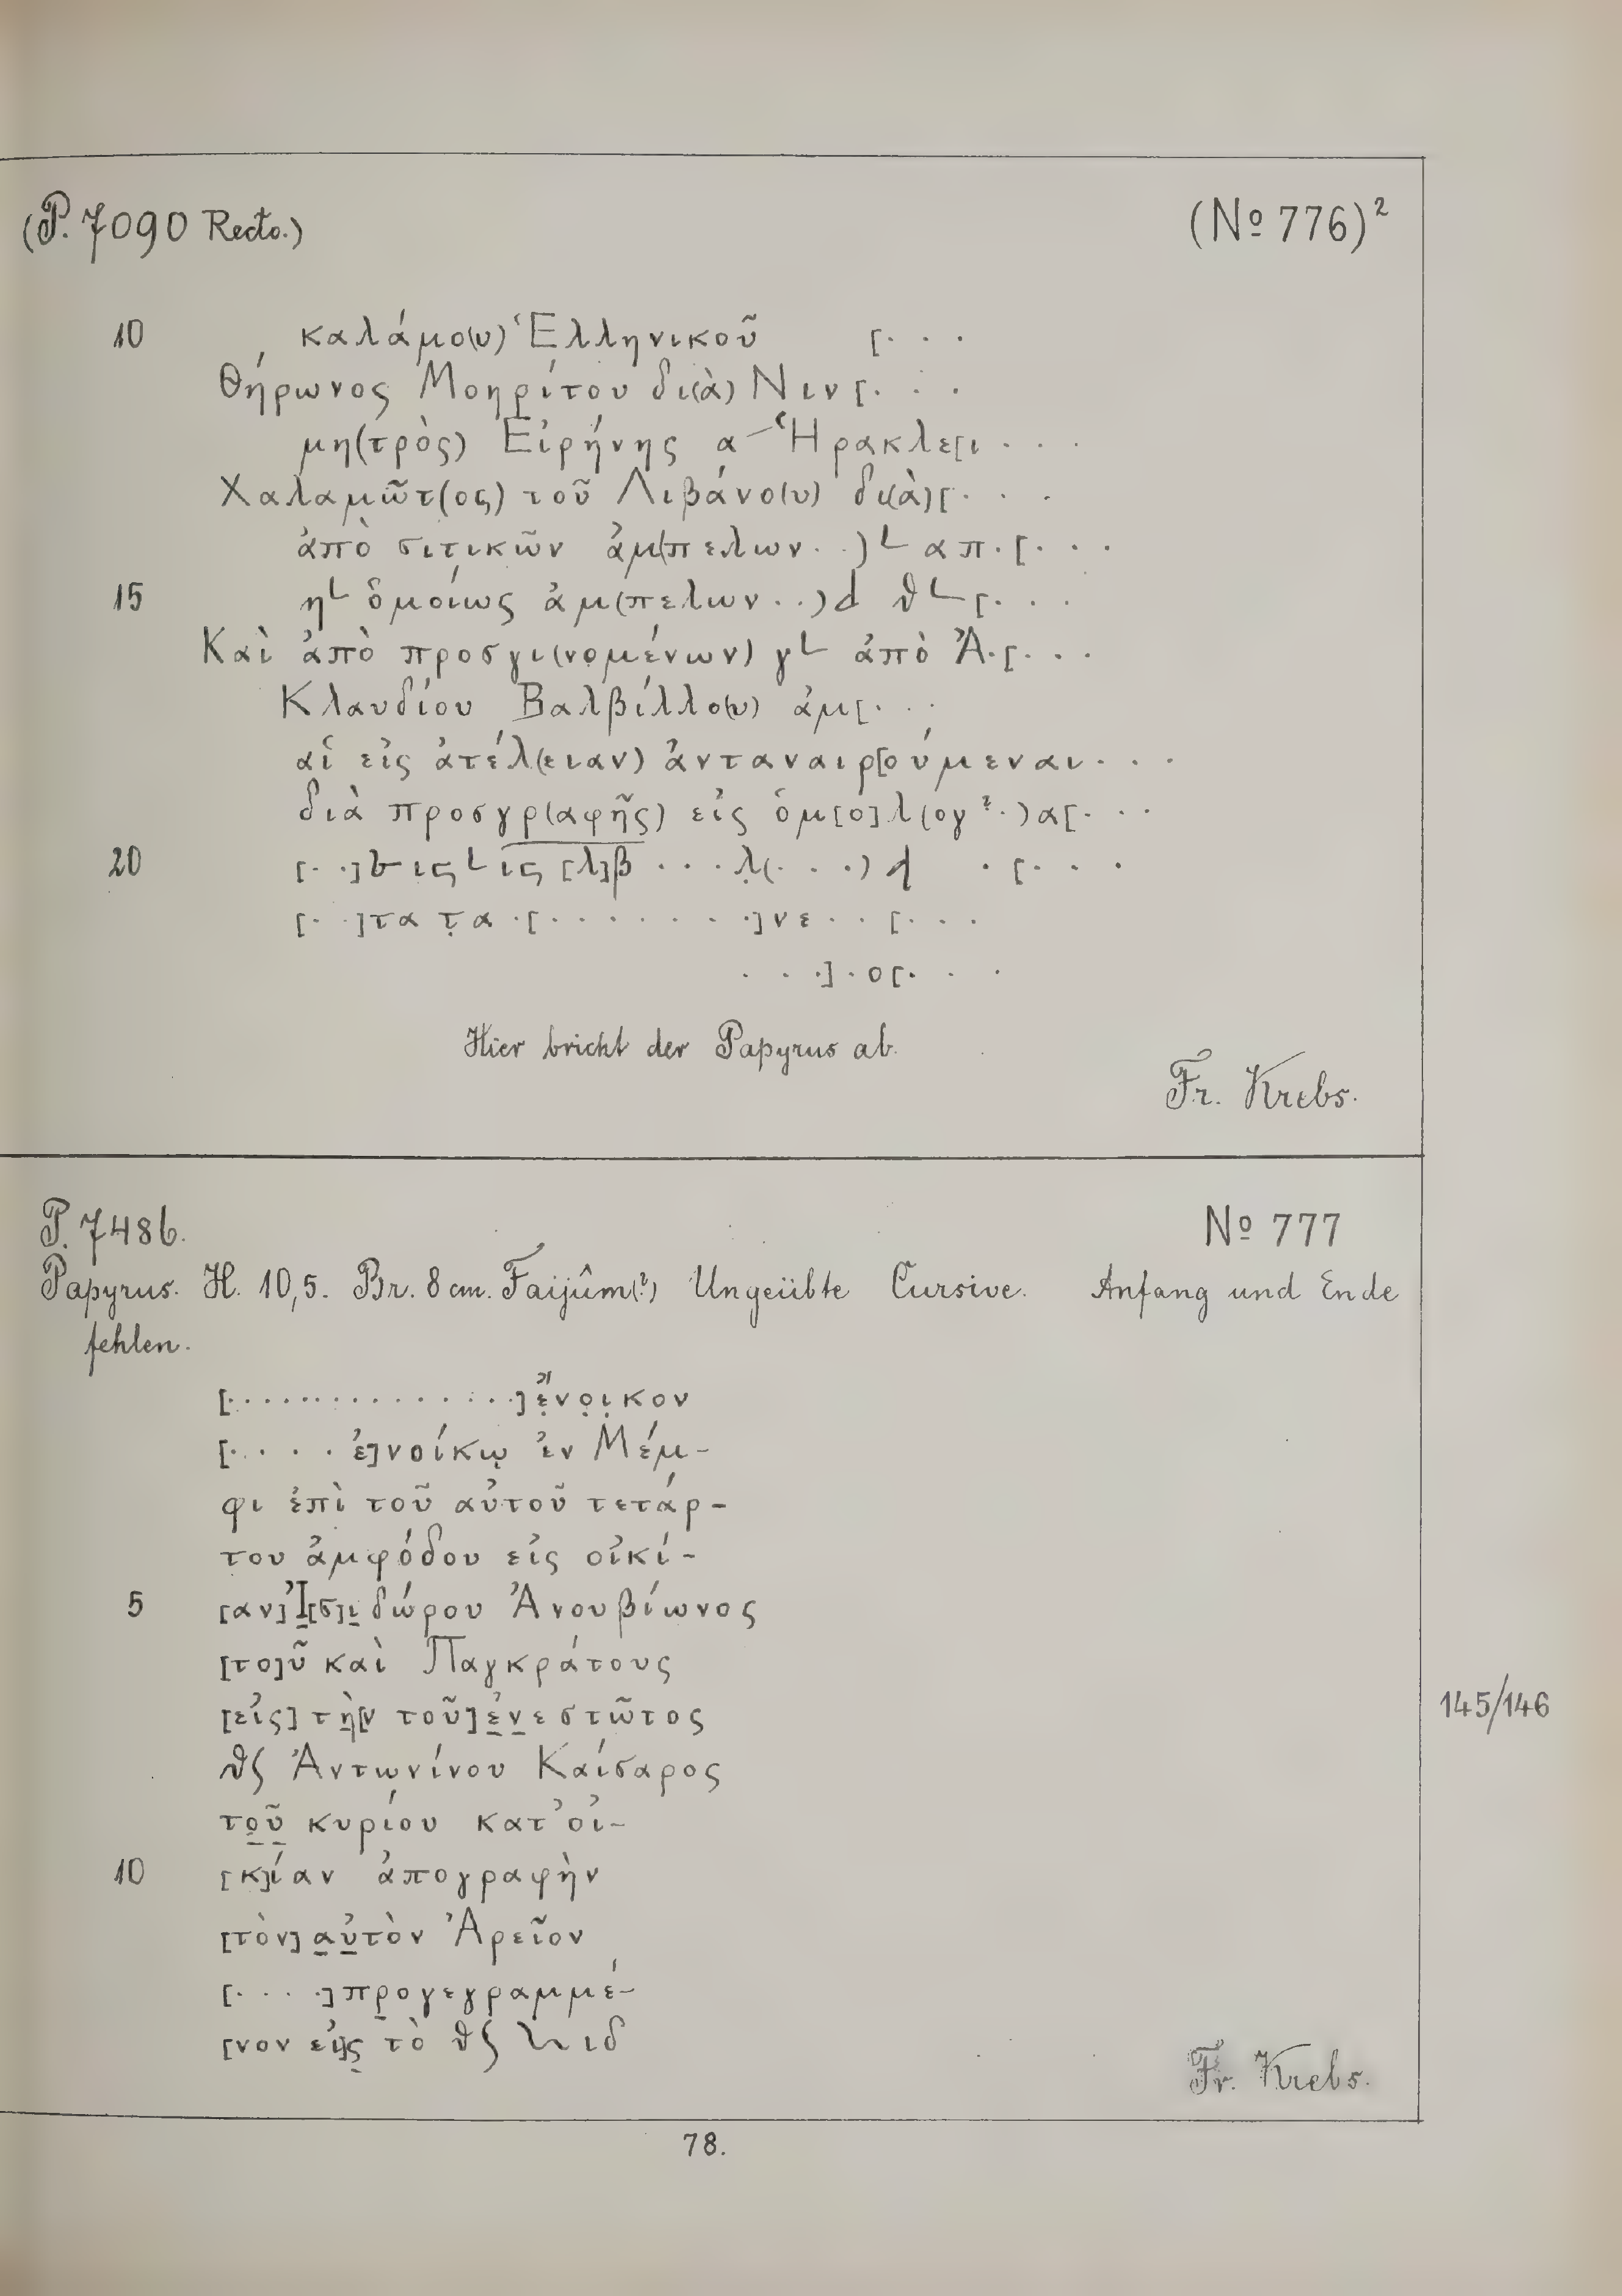 (P. 7090 Recto.) (No 776)²
10 καλάμο(υ) Ἑλληνικοῦ [. . .
Θήρωνος Μοηρίτου δι(ὰ) Νιν[. . .
μη(τρὸς) Εἰρήνης α — Ἡρακλε[ι . . .
Χαλαμῶτ(ος) τοῦ Λιβάνο(υ) δι(ὰ)[. . .
ἀπὸ σιτικῶν ἀμ(πελων . .) └ απ.[. . .
15 η└ ὁμοίως ἀμ(πελων . .) d θ└[. . .
Καὶ ἀπὸ προσγι(νομένων) γ└ ἀπὸ Ἀ.[. . .
Κλαυδίου Βαλβίλλο(υ) ἀμ[. . .
αἱ εἰς ἀτέλ(ειαν) ἀνταναιρ[ούμεναι . . .
διὰ προσγρ(αφῆς) εἰς ὁμ[ο]λ(ογ?.)α[. . .
20 [. .] ις└ ις [λ]β . . . λ̣(. . .) d . [. . .
[. .]τα τ̣α .[. . . . . . . .]νε . . [. . .
. . .] . ο[. . .
Hier bricht der Papyrus ab.
Fr. Krebs.
P. 7486. No 777
Papyrus. H. 10,5. Br. 8 cm. Faijûm(?) Ungeübte Cursive. Anfang und Ende
fehlen.
[. . . . . . . . . . . . . . .]ἔ̣νο̣ι̣κον
[. . . . ἐ]νοίκῳ ἐν Μέμ-
φι ἐπὶ τοῦ αὐτοῦ τετάρ-
του ἀμφόδου εἰς οἰκί-
5 [αν] Ἰ̣[σ]ι̣δώρου Ἀνουβίωνος
[το]ῦ καὶ Παγκράτους
[εἰς] τὴ̣[ν τοῦ] ἐ̣ν̣εστῶτος
θʃ Ἀντωνίνου Καίσαρος
το̣ῦ̣ κυρίου κατ' οἰ-
10 [κ]ίαν ἀπογραφὴν
[τὸν] α̣ὐ̣τὸν Ἀρεῖον
[. . . .]πρ̣ογεγραμμέ-
[νον εἰ]ς̣ τὸ θʃ ιδ
145/146
Fr. Krebs.
78.